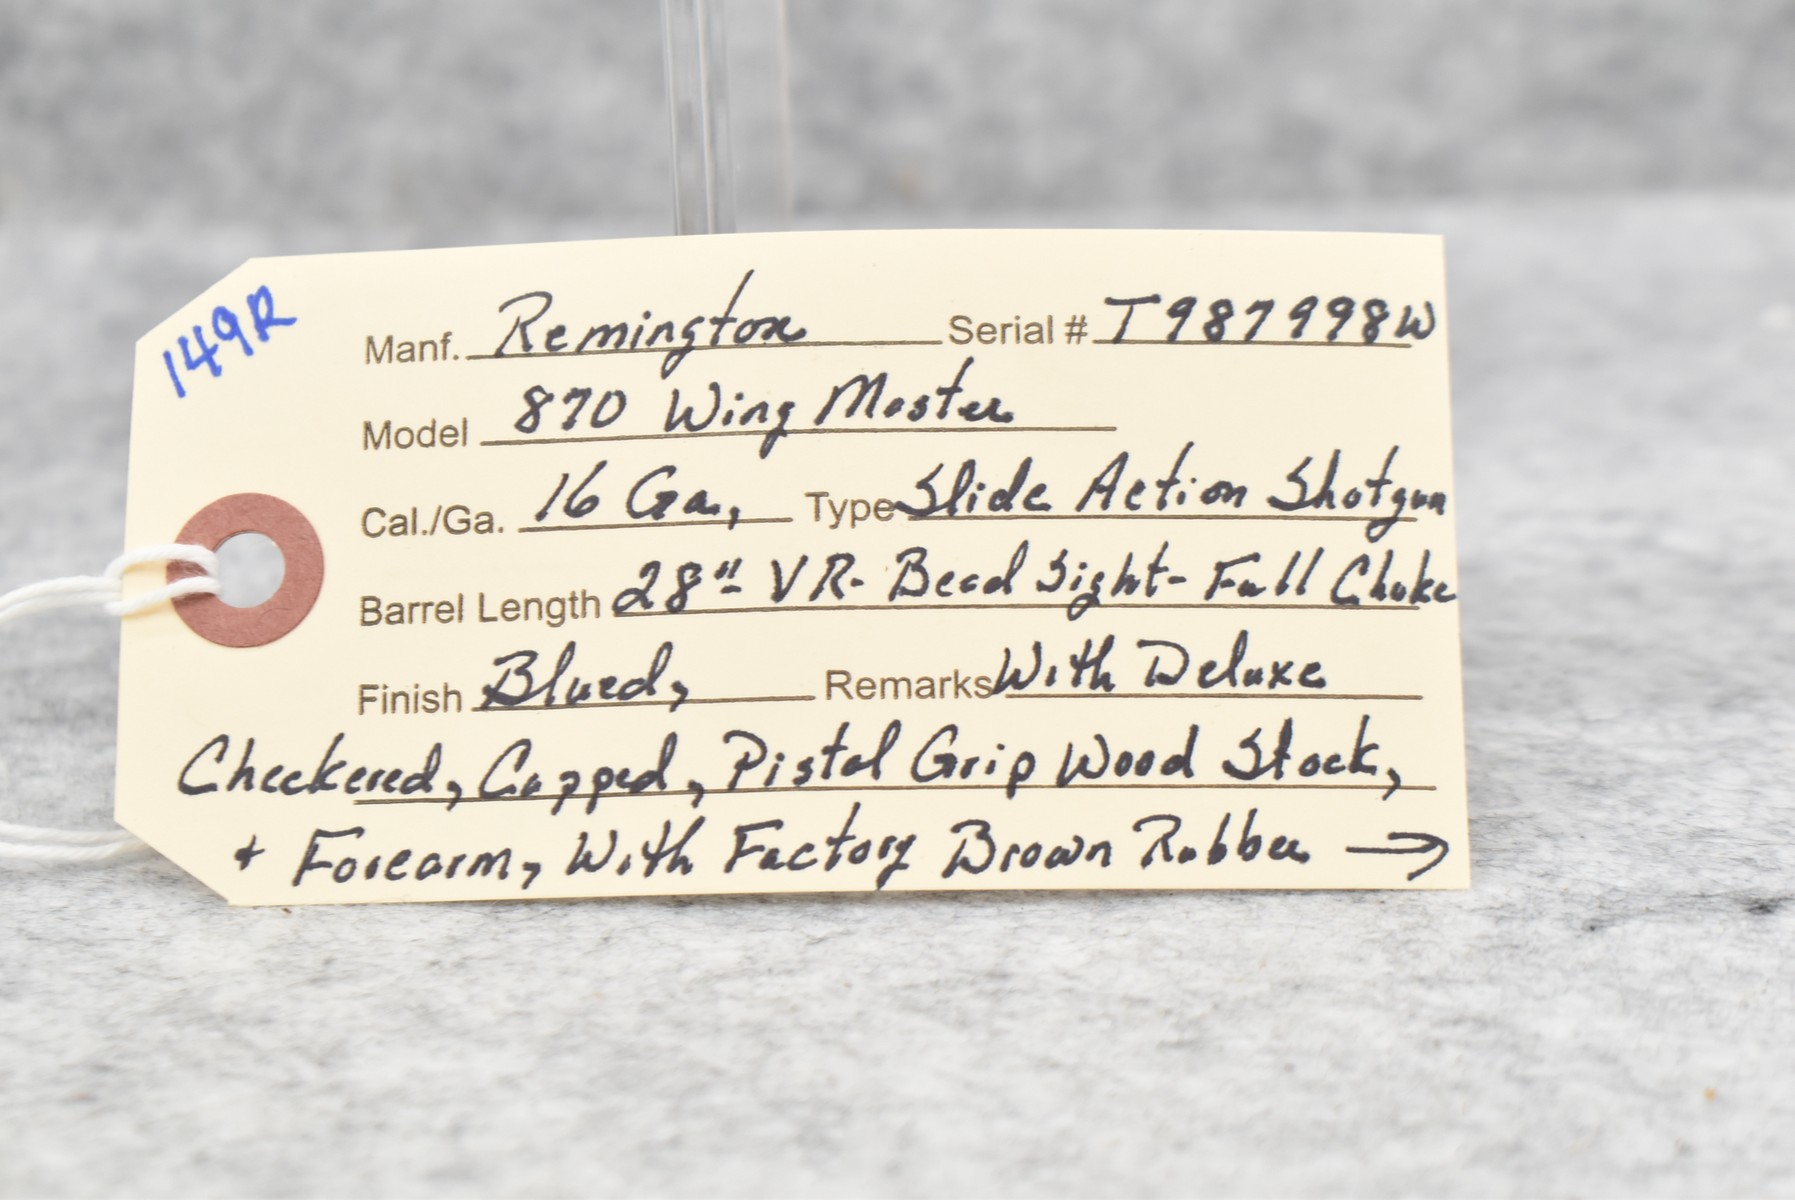 149R
Manf. Remington Serial # T987998W
Model 870 Wing Master
Cal./Ga. 16 Ga, Type Slide Action Shotgun
Barrel Length 28" VR- Bead Sight- Full Choke
Finish Blued, Remarks With Deluxe
Checkered, Capped, Pistol Grip Wood Stock,
+ Forearm, With Factory Brown Rubber →